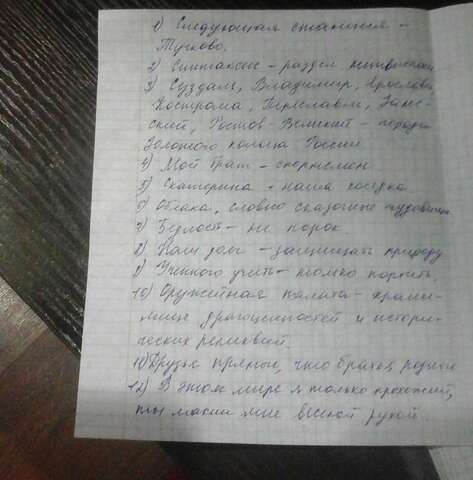 1) Следующая станция –
Тучково.
2) Синтаксис – раздел
3) Суздаль, Владимир, Ярославль,
Кострома, Переславль, Залес-
ский, Ростов-Великий – города
Золотого кольца России
4) Мой брат – спортсмен
5) Екатерина – наша соседка
6) Облака, словно сказочные чудовища
7) Бедность – не порок
8) Наш долг – защищать природу
9) Ученого учить – только портить
10) Оружейная палата – храни-
лище драгоценностей и истори-
ческих реликвий.
11) Друзья прямые, что братья родные
12) В этом мире я только прохожий,
ты махни мне весной рукой.